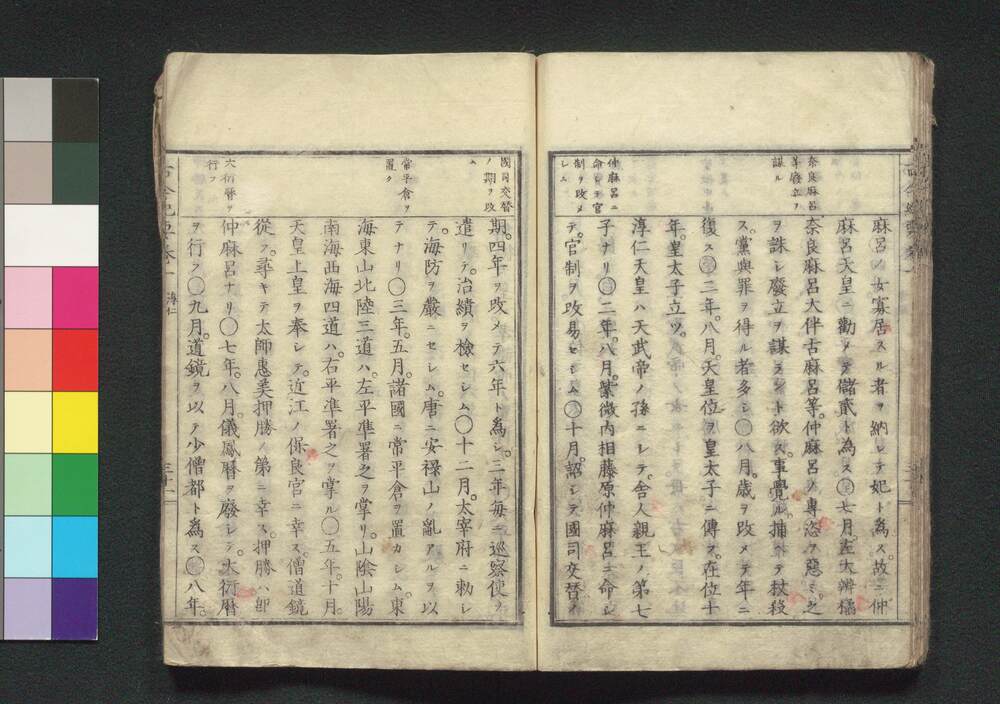 麻呂ノ女寡居スル者ヲ納レテ妃ト為ス。故ニ仲
麻呂天皇ニ勸メテ儲貳ト為ス七月。左大辨橘
奈良麻呂大伴古麻呂等。仲麻呂ノ專恣ヲ惡ミ。之
ヲ誅シ廢立ヲ謀ラント欲ス。事覺ル。捕ヘテ杖殺
ス。黨與罪ヲ得ル者多シ〇八月。歲ヲ改メテ年ニ
復ス〇二年。八月。天皇位ヲ皇太子ニ傳フ。在位十
年。皇太子立ツ。
淳仁天皇ハ天武帝ノ孫ニシテ。舍人親王ノ第七
子ナリ〇二年。八月。紫微內相藤原仲麻呂ニ命シ
テ。官制ヲ改易セシム〇十月。詔シテ國司交替ノ
奈良麻呂
等廢立ヲ
謀ル
仲麻呂ニ
命シテ官
制ヲ改メ
シム
期。四年ヲ改メテ六年ト為シ。三年每ニ巡察使ヲ
遣リテ。治績ヲ檢セシム〇十二月。太宰府ニ勅シ
テ。海防ヲ嚴ニセシム。唐ニ安祿山ノ亂アルヲ以
テナリ〇三年。五月。諸國ニ常平倉ヲ置カシム。東
海東山北陸三道ハ。左平準署之ヲ掌リ。山陰山陽
南海西海四道ハ。右平準署之ヲ掌ル〇五年。十月。
天皇上皇ヲ奉シテ。近江ノ保良宮ニ幸ス。僧道鏡
從フ。尋キテ太師惠美押勝ノ第ニ幸ス。押勝ハ卽
仲麻呂ナリ〇七年。八月。儀鳳曆ヲ廢シテ。大衍曆
ヲ行フ〇九月。道鏡ヲ以テ少僧都ト為ス〇八年。
國司交替
ノ期ヲ改
ム
常平倉ヲ
置ク
大衍曆ヲ
行フ
淳仁
三十一